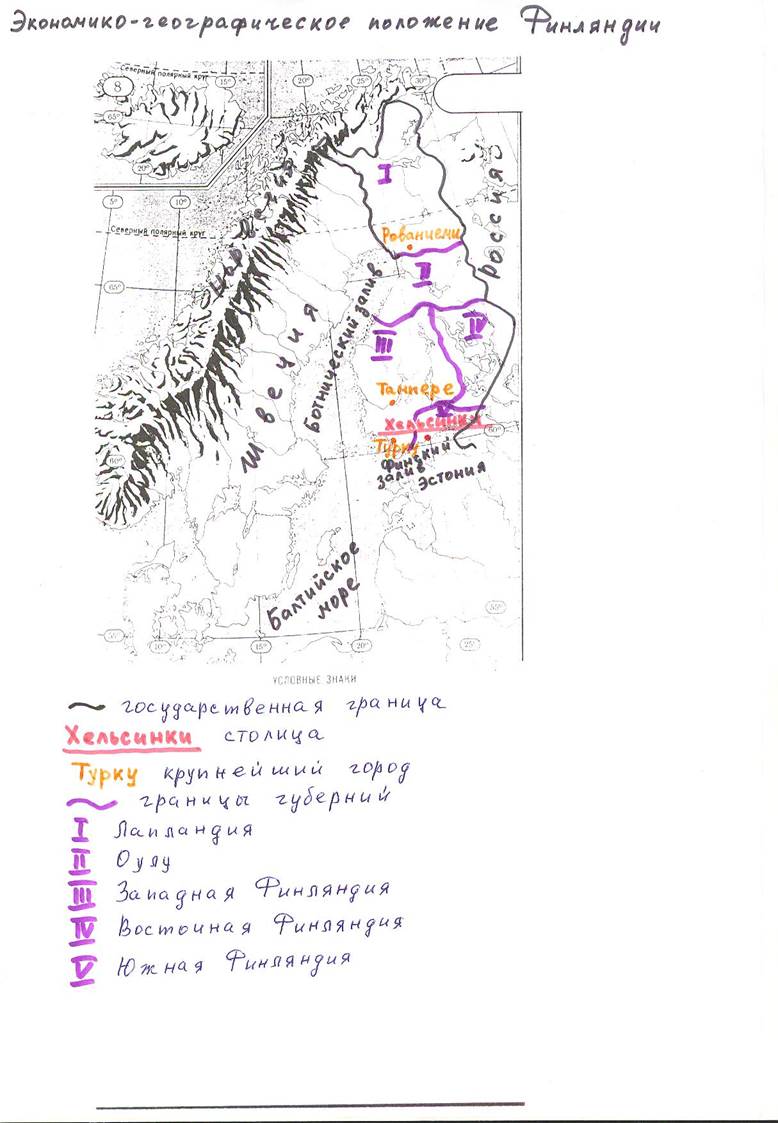 Экономико-географическое положение Финляндии
Северный полярный круг
8
15°
20°
25°
30°
65°
20°
5°
10°
Северный полярный круг
65°
60°
Норвегия
Швеция
Россия
I
Рованиеми
II
Ботнический залив
III
IV
Тампере
V
Хельсинки
60°
Турку
Финский
залив
Эстония
Балтийское
море
55°
55°
10°
15°
20°
25°
УСЛОВНЫЕ ЗНАКИ
государственная граница
Хельсинки столица
Турку крупнейший город
границы губерний
I Лапландия
II Оулу
III Западная Финляндия
IV Восточная Финляндия
V Южная Финляндия